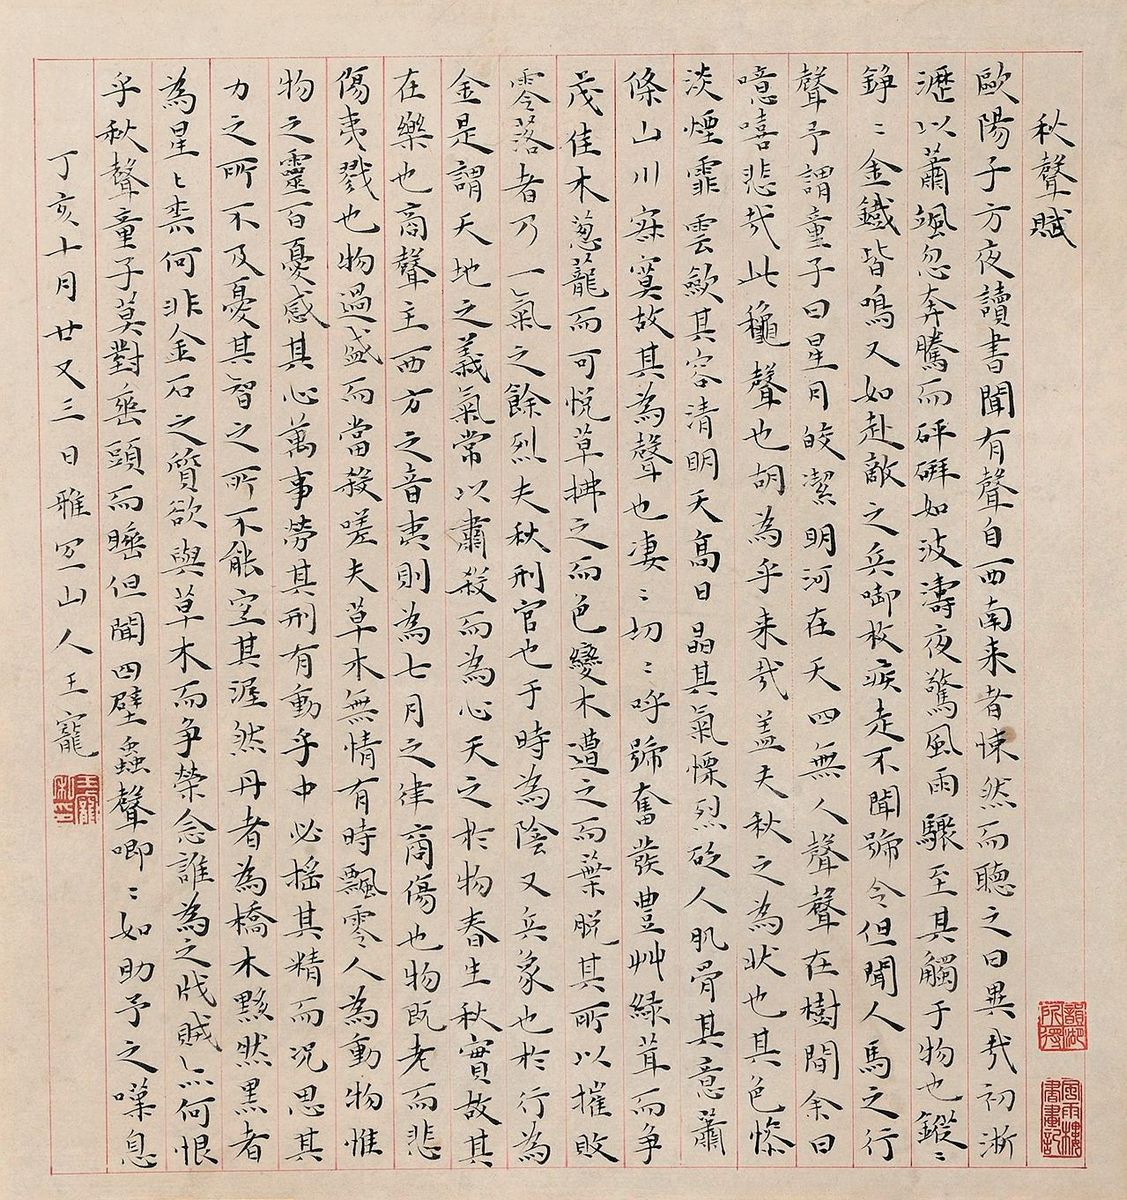 秋聲賦
歐陽子方夜讀書聞有聲自西南来者悚然而聽之曰異哉初淅
瀝以蕭颯忽奔騰而砰如波濤夜驚風雨驟至其觸于物也鏦〻
錚〻金鐵皆鳴又如赴敵之兵啣枚疾走不聞號令但聞人馬之行
聲予謂童子曰星月皎潔明河在天四無人聲聲在樹間余曰
噫嘻悲哉此穐聲也胡為乎来哉蓋夫秋之為狀也其色慘
淡煙霏雲歛其容清明天高日晶其氣慄烈砭人肌骨其意蕭
條山川寂寞故其為聲也凄〻切〻呼號奮發豊艸綠茸而争
茂佳木葱蘢而可悅草拂之而色變木遭之而葉脱其所以摧敗
零落者乃一氣之餘烈夫秋刑官也于時為陰又兵象也於行為
金是謂天地之義氣常以肅殺而為心天之於物春生秋實故其
在樂也商聲主西方之音夷則為七月之律商傷也物既老而悲
傷夷戮也物過盛而當殺嗟夫草木無情有時飄零人為動物惟
物之靈百憂感其心萬事勞其刑有動乎中必搖其精而況思其
力之所不及憂其智之所不能宜其渥然丹者為槁木黟然黑者
為星〻柰何非金石之質欲與草木而争榮念誰為之戕賊亦何恨
乎秋聲童子莫對垂頭而睡但聞四壁蟲聲唧〻如助予之嘆息
丁亥十月廿又三日雅宜山人王寵
王寵私印
風雨樓書畫記